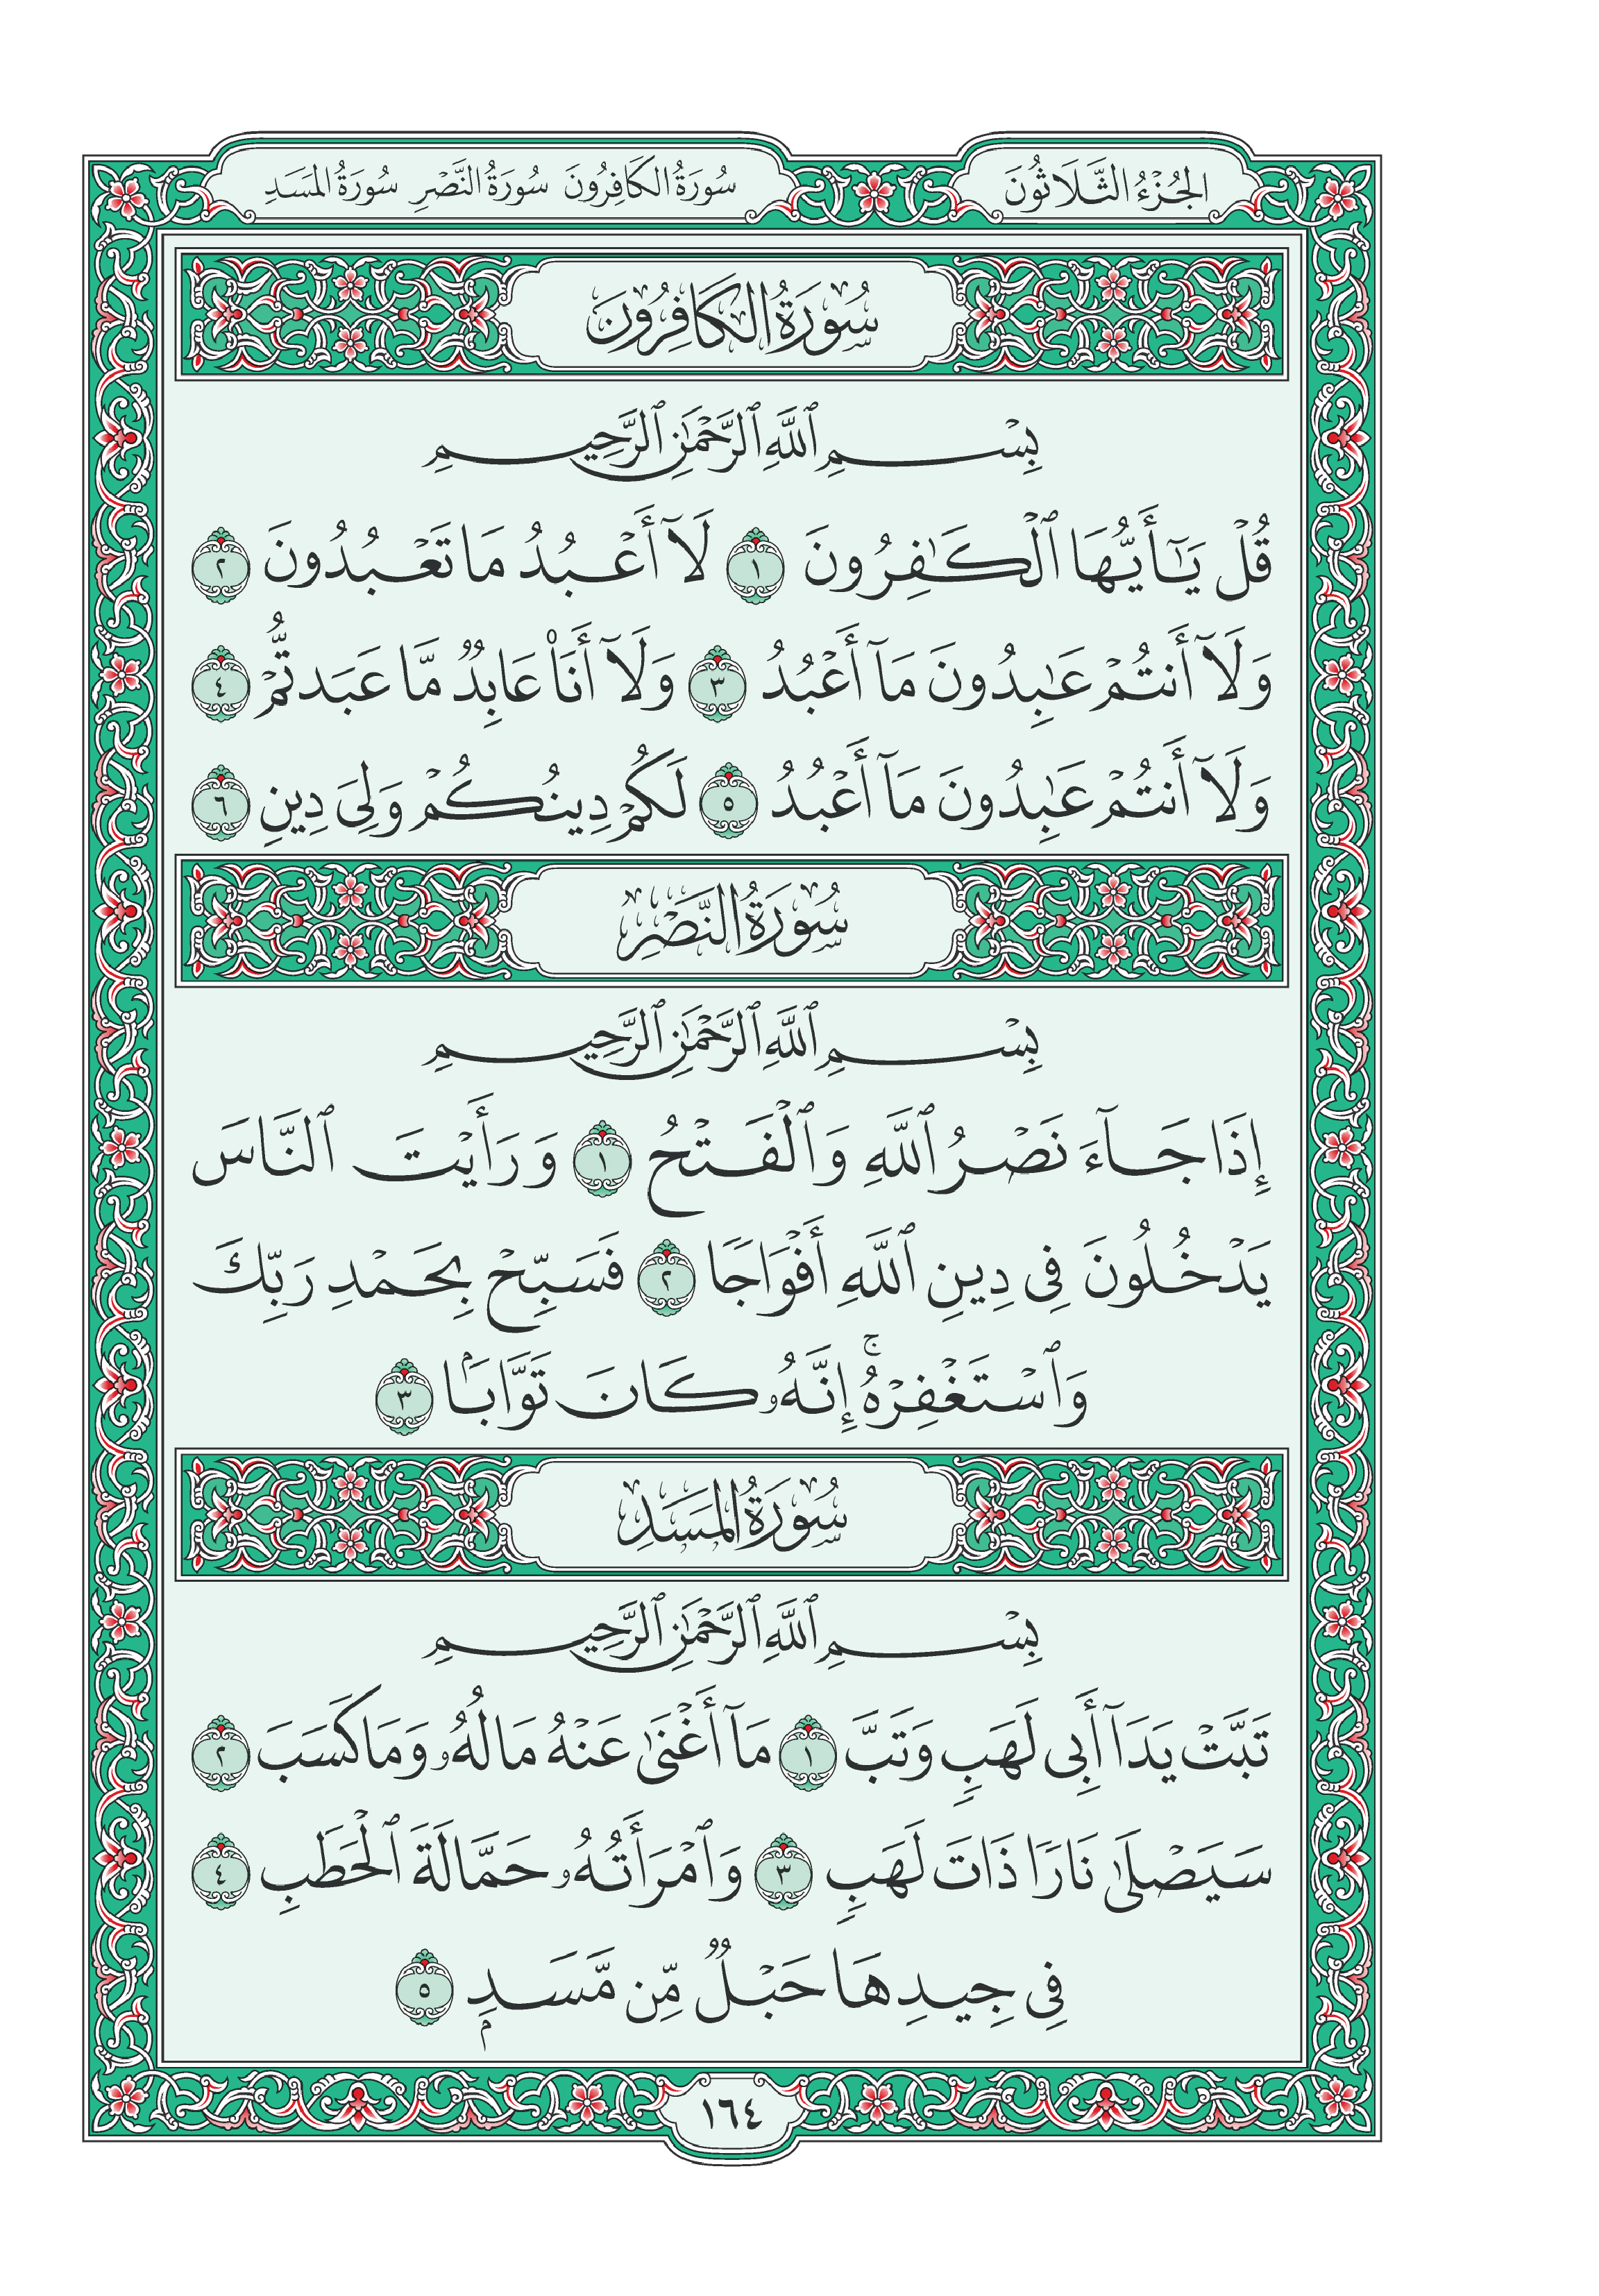 الجُزْءُ الثَّلَاثُونَ
سُورَةُ الكَافِرُونَ سُورَةُ النَّصْرِ سُورَةُ المَسَدِ
سُورَةُ الكَافِرُونَ
بِسْمِ ٱللَّهِ ٱلرَّحْمَٰنِ ٱلرَّحِيمِ
قُلْ يَٰٓأَيُّهَا ٱلْكَٰفِرُونَ ١ لَآ أَعْبُدُ مَا تَعْبُدُونَ ٢
وَلَآ أَنتُمْ عَٰبِدُونَ مَآ أَعْبُدُ ٣ وَلَآ أَنَا۠ عَابِدٌ مَّا عَبَدتُّمْ ٤
وَلَآ أَنتُمْ عَٰبِدُونَ مَآ أَعْبُدُ ٥ لَكُمْ دِينُكُمْ وَلِىَ دِينِ ٦
سُورَةُ النَّصْرِ
بِسْمِ ٱللَّهِ ٱلرَّحْمَٰنِ ٱلرَّحِيمِ
إِذَا جَآءَ نَصْرُ ٱللَّهِ وَٱلْفَتْحُ ١ وَرَأَيْتَ ٱلنَّاسَ
يَدْخُلُونَ فِى دِينِ ٱللَّهِ أَفْوَاجًا ٢ فَسَبِّحْ بِحَمْدِ رَبِّكَ
وَٱسْتَغْفِرْهُ ۚ إِنَّهُۥ كَانَ تَوَّابَۢا ٣
سُورَةُ المَسَدِ
بِسْمِ ٱللَّهِ ٱلرَّحْمَٰنِ ٱلرَّحِيمِ
تَبَّتْ يَدَآ أَبِى لَهَبٍ وَتَبَّ ١ مَآ أَغْنَىٰ عَنْهُ مَالُهُۥ وَمَا كَسَبَ ٢
سَيَصْلَىٰ نَارًا ذَاتَ لَهَبٍ ٣ وَٱمْرَأَتُهُۥ حَمَّالَةَ ٱلْحَطَبِ ٤
فِى جِيدِهَا حَبْلٌ مِّن مَّسَدِۭ ٥
١٦٤